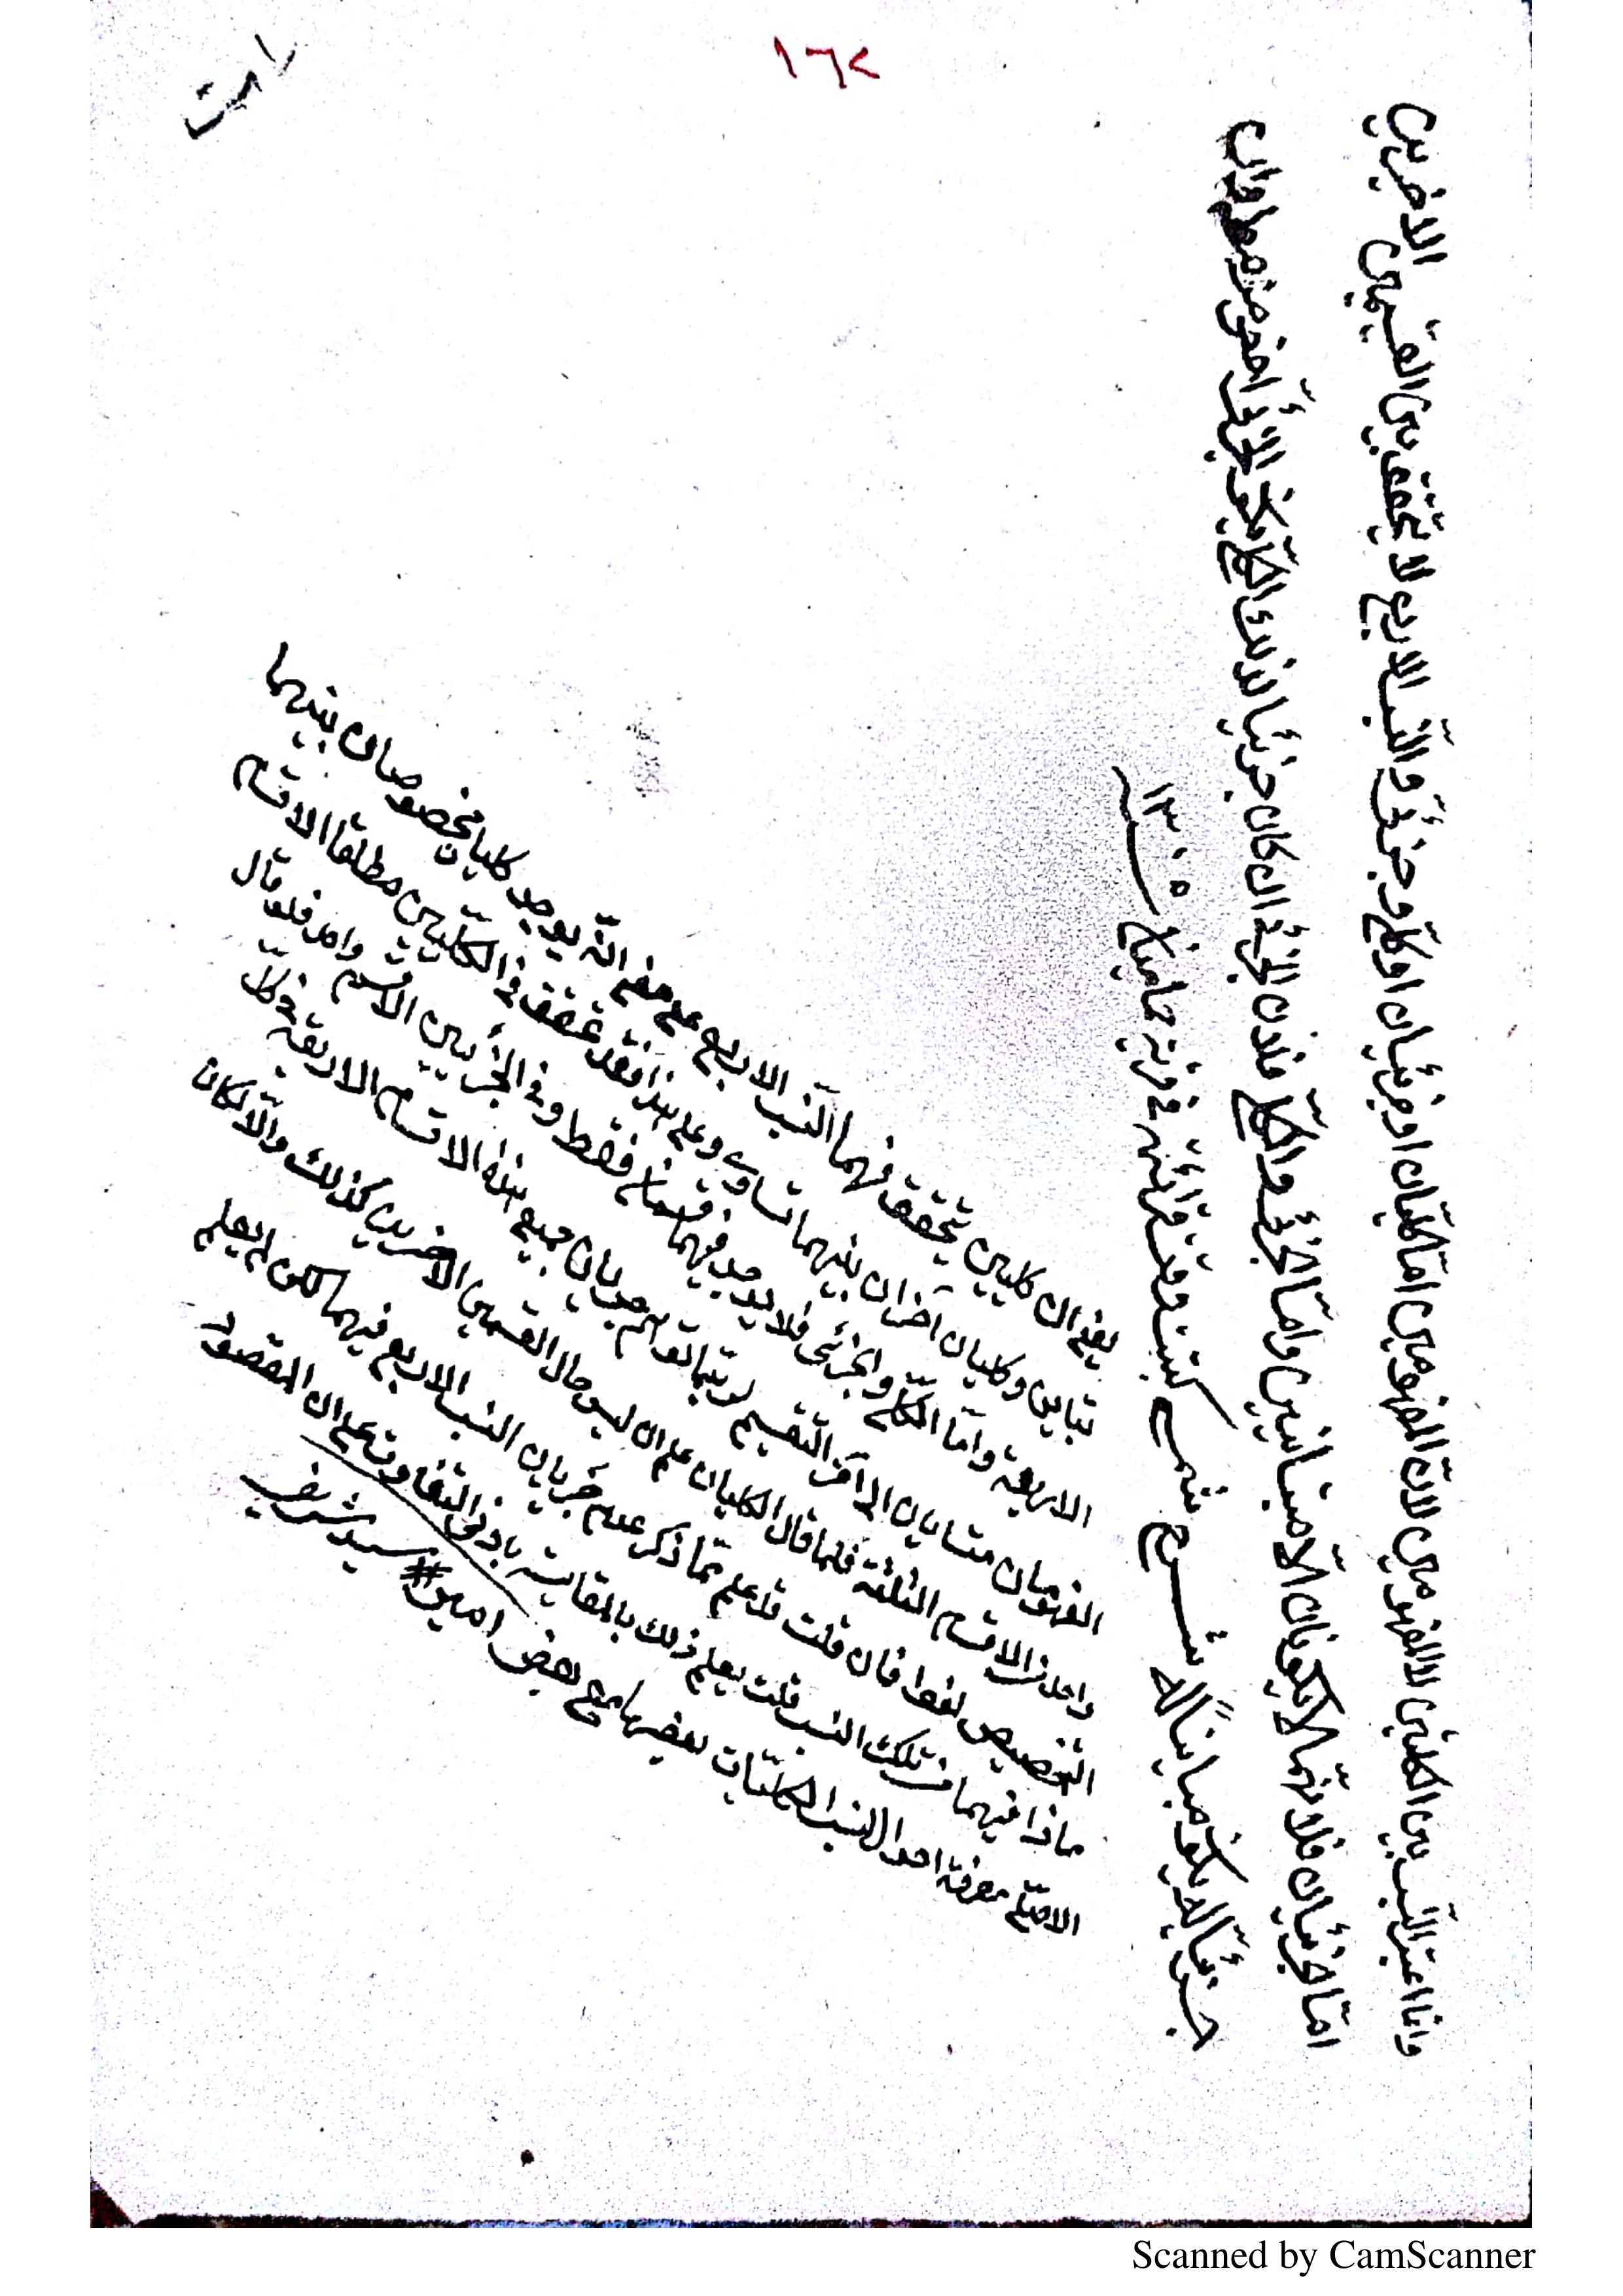 ١٦٢
وانما اعتبر النسب بين الكليين دون المفهومين لان المفهومين اما كليان او جزئيان او كلي وجزئي والنسب الاربع لا يتحقق بين القسمين الاخيرين
اما الجزئيان فلانهما لا يكونان الا متباينين واما الجزئي والكلي فلان الجزئي ان كان جزئيا لذلك الكلي يكون اخص منه مطلقا وان
لم يكن جزئيا له يكون مباينا له شرح شمسي كتبت وقت قرائتي في قرية ١٣٠٥
يعني ان كليين يتحقق فيهما النسب الاربع على معنى انه يوجد كليان مخصوصان بينهما
تباين وكليان آخران بينهما تساوي وعلى هذا فقد تحقق في الكليين مطلقا الاقسام
الاربعة واما الكلي والجزئي فلا يوجد فيهما قسمان فقط وفي الجزئيين الا قسم واحد فلو قال
المفهومان متساويان الى آخر التقسيم لربما توهم جريان جميع هذه الاقسام الاربعة في كل
واحد من الاقسام الثلثة فلما قال الكليان علم ان ليس حال القسمين الاخيرين كذلك والا لكان
التخصيص لغوا فان قلت قد علم مما ذكر عدم جريان النسب الاربع فيهما لكن لم يعلم
ماذا فيهما من تلك النسب قلت يعلم ذلك بالمقايسة بادنى التفات وعلى ان المقصود
الاصلي معرفة احوال النسب الكليات بعضها مع بعض امين #
سيد شريف
Scanned by CamScanner